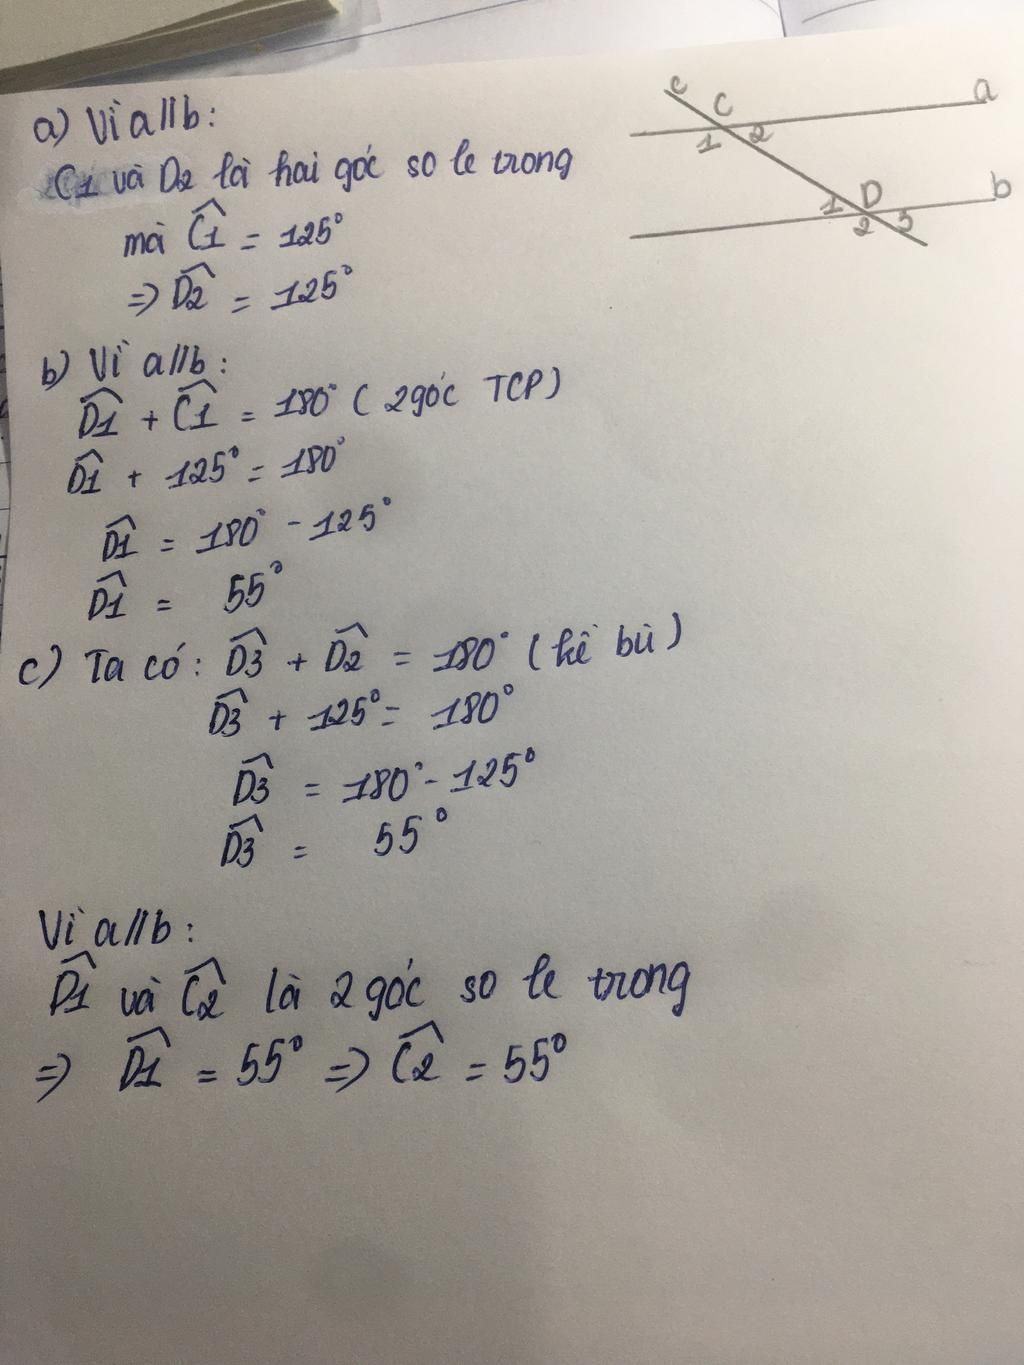 a) Vì a//b:
C1 và D2 là hai góc so le trong
mà Ĉ1 = 125°
=> D̂2 = 125°
b) Vì a//b:
D̂1 + Ĉ1 = 180° ( 2 góc TCP)
D̂1 + 125° = 180°
D̂1 = 180° - 125°
D̂1 = 55°
c) Ta có: D̂3 + D̂2 = 180° (kề bù)
D̂3 + 125° = 180°
D̂3 = 180° - 125°
D̂3 = 55°
Vì a//b:
D̂1 và Ĉ2 là 2 góc so le trong
=> D̂1 = 55° => Ĉ2 = 55°
c
C
a
1 2
D
b
1
2 3